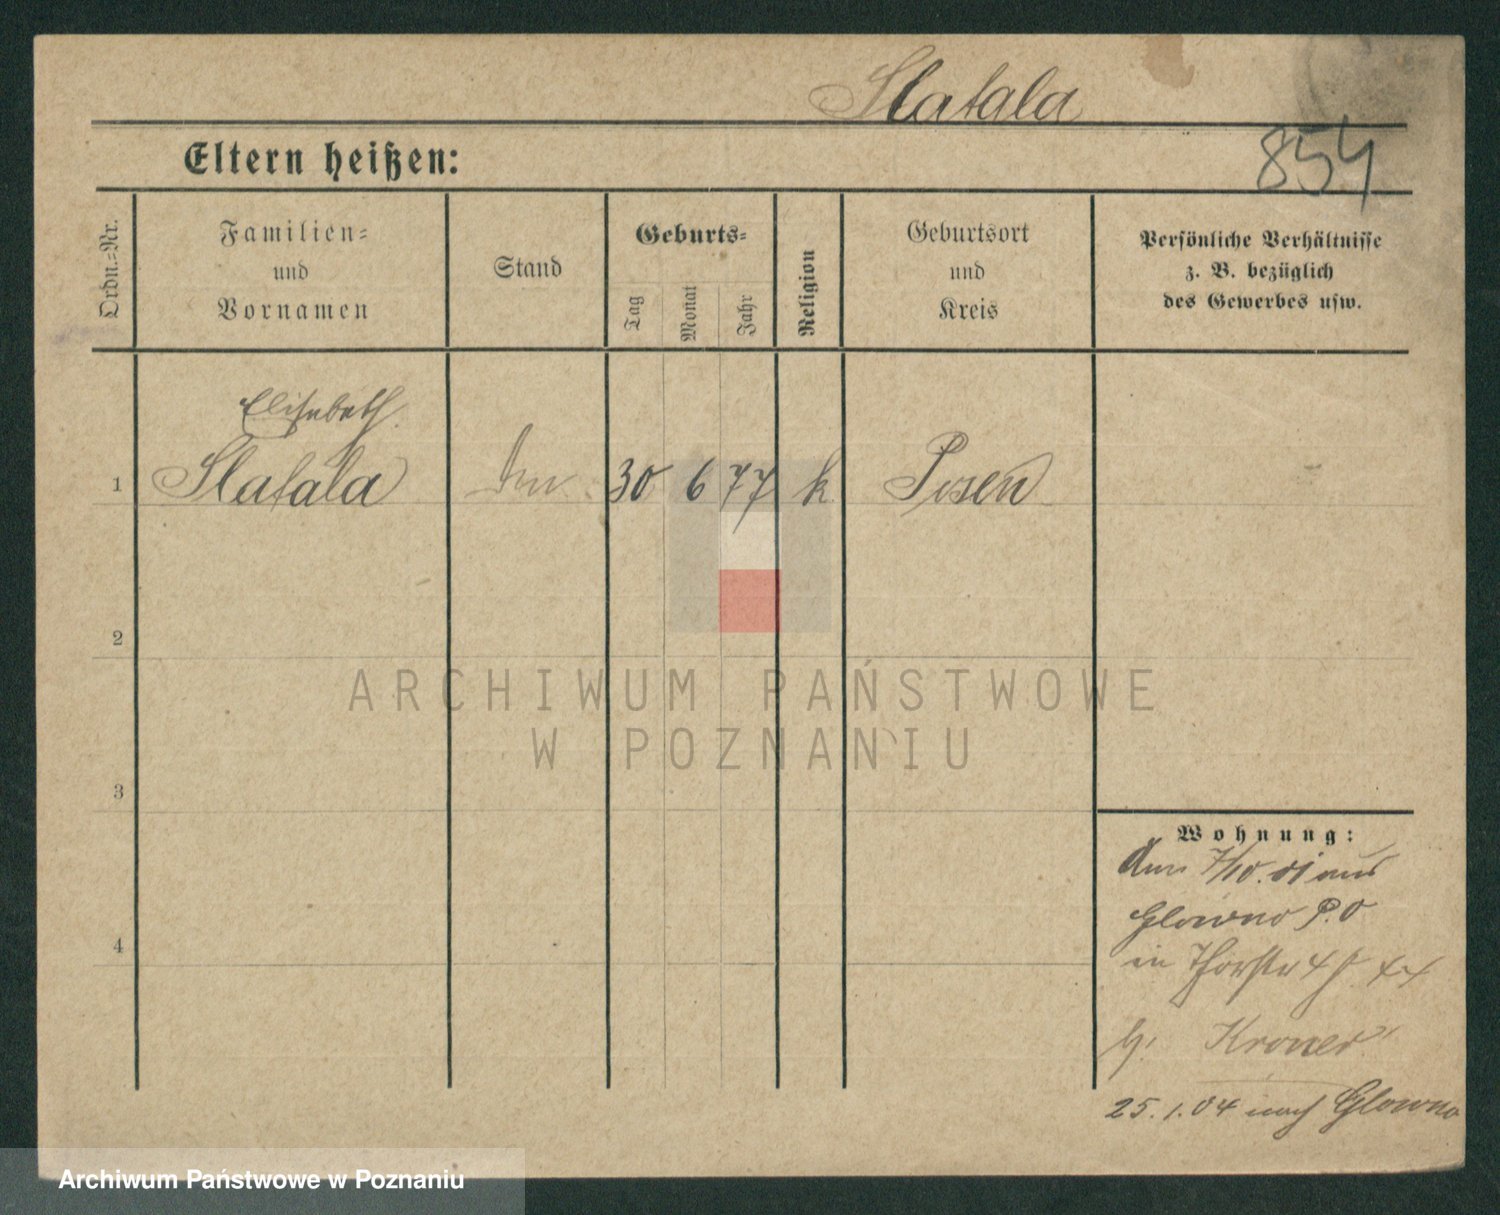 Slatala
Eltern heißen:
854
Ordn.-Nr.
Familien-
und
Vornamen
Stand
Geburts-
Tag
Monat
Jahr
Religion
Geburtsort
und
Kreis
Persönliche Verhältnisse
z. B. bezüglich
des Gewerbes usw.
Elisabeth
1 Slatala 30 6 77 k Posen
2
3
4
ARCHIWUM PAŃSTWOWE
W POZNANIU
Wohnung:
7/10.01 aus
Glowno P.O
in
Kroner
25.1.04 nach Glowno
Archiwum Państwowe w Poznaniu